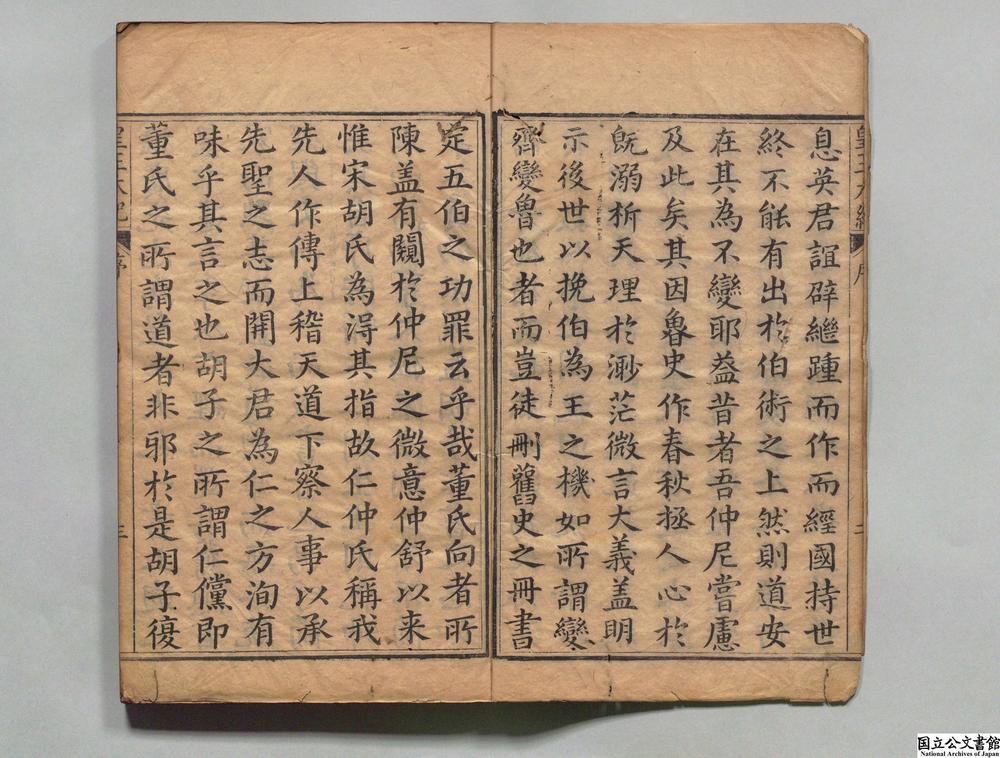 息英君誼辟繼踵而作而經國持世
終不能有出扵伯術之上然則道安
在其為不變耶葢昔者吾仲尼嘗慮
及此矣其因魯史作春秋拯人心扵
既溺析天理扵渺茫微言大義盖明
示後世以挽伯為王之機如所謂變
齊變魯也者而豈徒刪舊史之冊書
定五伯之功罪云乎哉董氏向者所
陳盖有闚扵仲尼之微意仲舒以来
惟宋胡氏為淂其指故仁仲氏稱我
先人作傳上稽天道下察人事以承
先聖之志而開大君為仁之方洵有
味乎其言之也胡子之所謂仁儻即
董氏之所謂道者非邪扵是胡子復
皇王大紀
序
二
皇王大紀
序
三
国立公文書館
National Archives of Japan